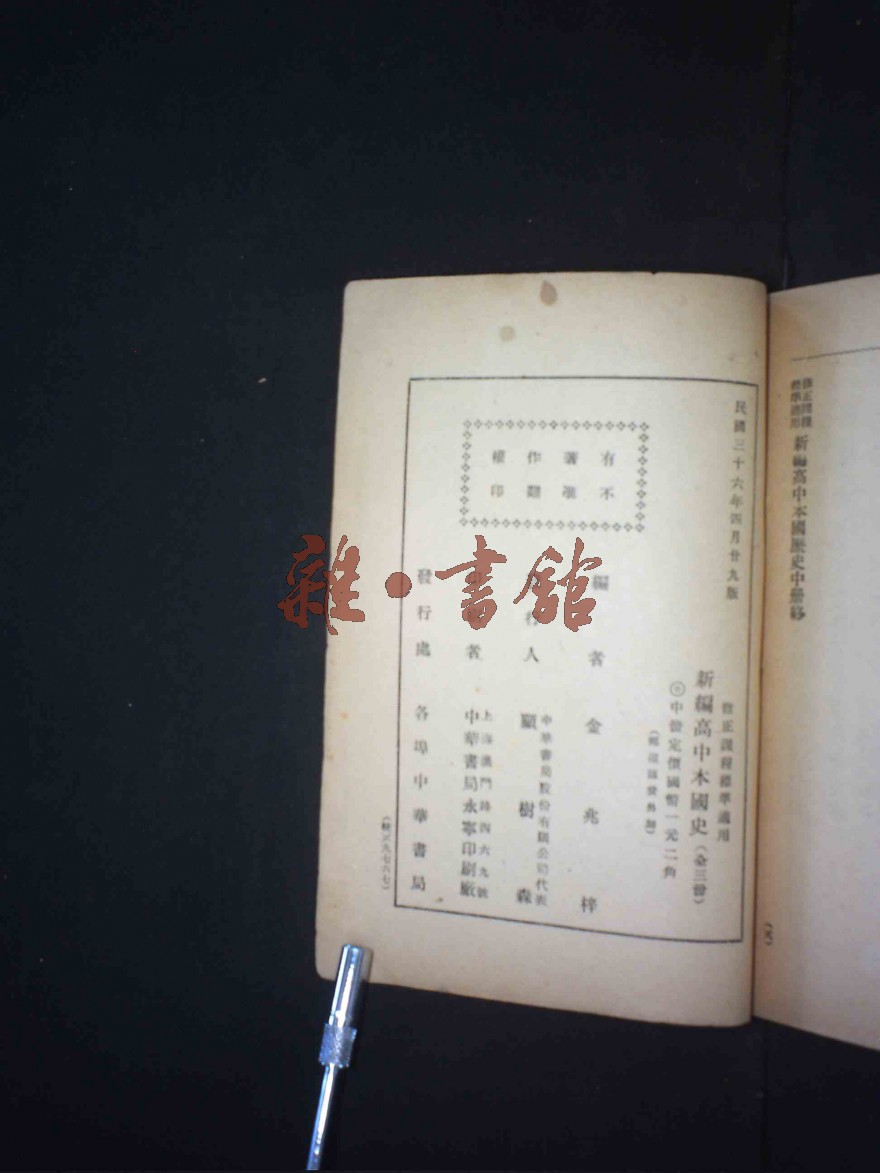 修正課程
標準適用
新編高中本國歷史中册終
民國三十六年四月廿九版
修正課程標準適用
新編高中本國史（全三册）
中册定價國幣一元二角
有著作權
不准翻印
編者 金兆梓
行人
中華書局股份有限公司代表
顧樹森
者
上海澳門路四六九號
中華書局永寧印刷廠
發行處 各埠中華書局
雜·書館